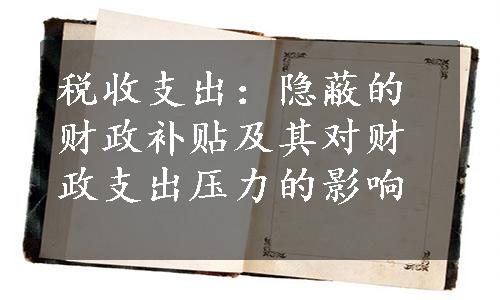 税收支出：隐蔽的
财政补贴及其对财
政支出压力的影响